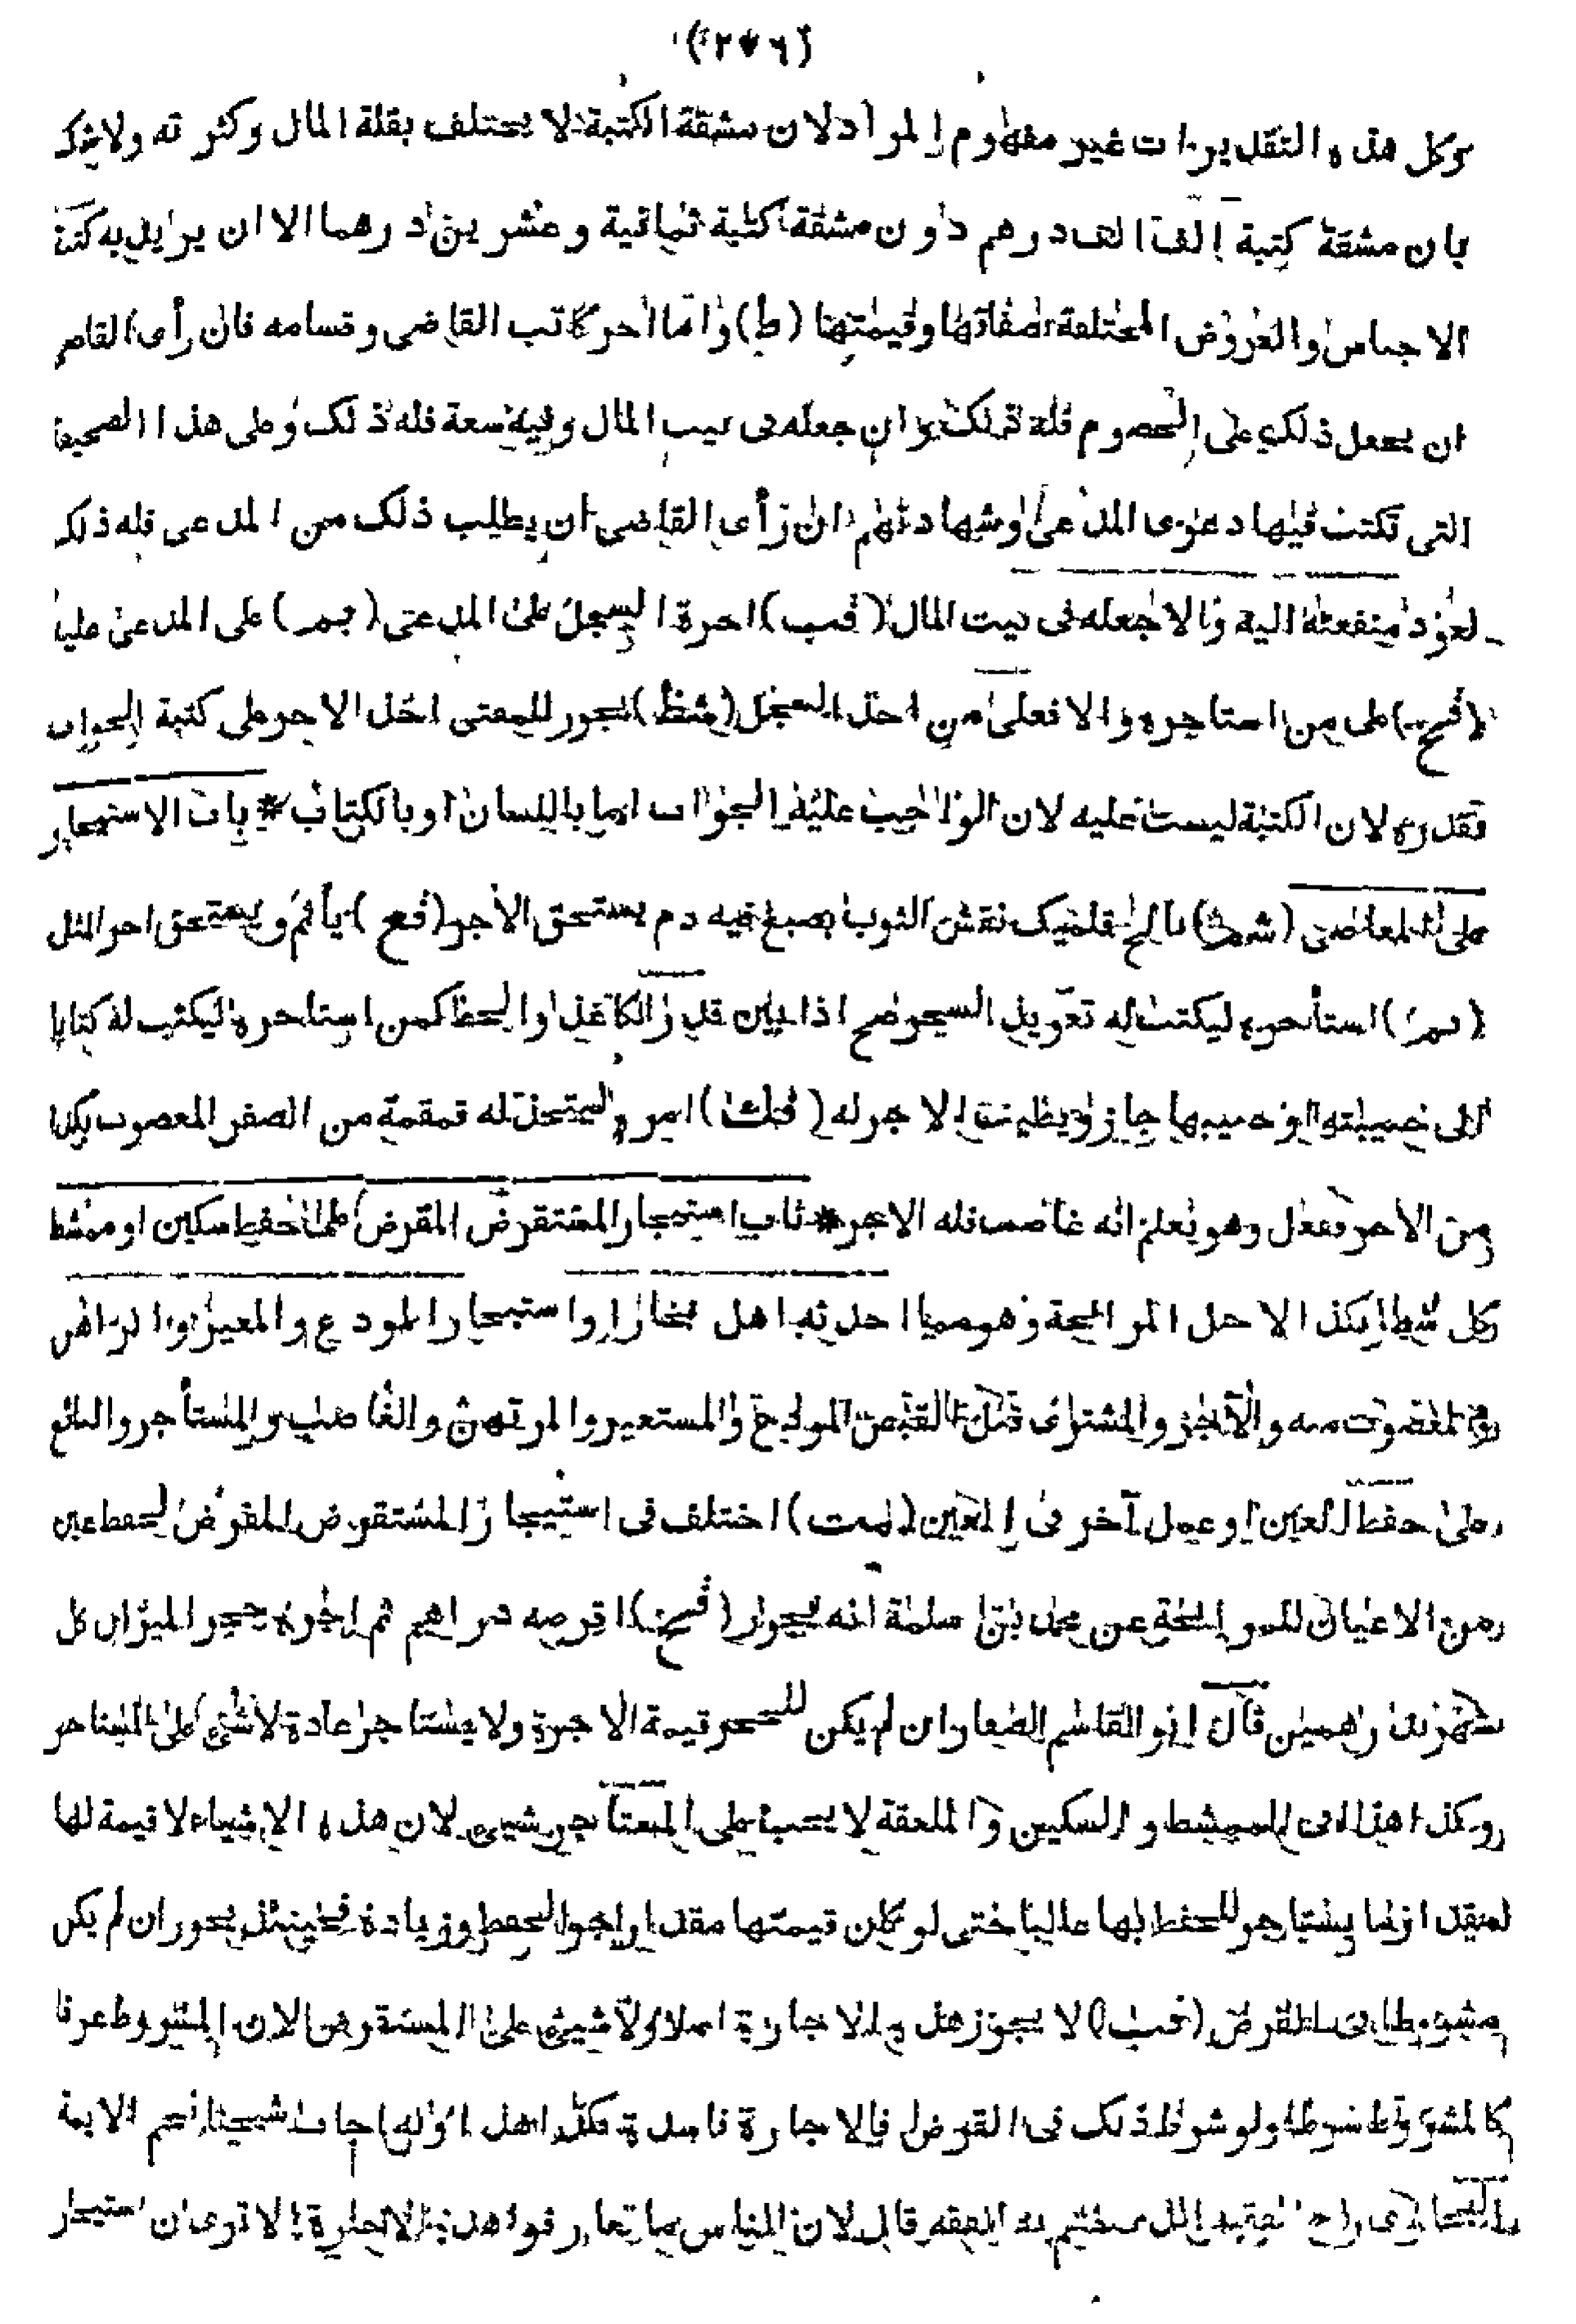 (٢٧٦)
وكل هذه التقديرات غير مفهوم المراد لان مشقة الكتبة لا يختلف بقلة المال وكثرته ولا شك
بان مشقة كتبة الف الف درهم دون مشقة كتبة ثمانية وعشرين درهما الا ان يزايل به كتبة
الاجناس والعروض المختلفة صفاتها وقيمتها (ط) واما اجر كاتب القاضى وقسامه فان رأى القاضى
ان يجعل ذلك على الخصوم فله ذلك وان جعله فى بيت المال وفيه سعة فله ذلك وعلى هذا الصحيفة
التى تكتب فيها دعوى المدعى وشهادتهم ان رأى القاضى ان يطلب ذلك من المدعى فله ذلك
لعود منفعته اليه والا جعله فى بيت المال (قب) اجرة السجل على المدعى (بم) على المدعى عليه
على من استاجره والا فعلى من اخذ السجل يجوز للمفتى اخذ الاجر على كتبة الجواب
بقدره لان الكتبة ليست عليه لان الواجب عليه الجواب اما باللسان او بالكتاب * باب الاستيجار
على المعاصى نقش الثوب بصبغ فيه دم يستحق الاجر يأثم ويستحق اجر المثل
استأجره ليكتب له تعويذ السحر صح اذا بين قدر الكاغذ والخط كمن استاجره ليكتب له كتابا
الى حبيبته او حبيبها جاز ويطيب له الاجر له امره ليتخذ له قمقمة من الصفر المغصوب بكذا
من الاجر ففعل وهو يعلم انه غاصب فله الاجر * باب استيجار المستقرض المقرض على حفظ سكين او مشط
كل شهر بكذا لاجل المرابحة وهو مما احدثه اهل بخارا واستيجار المودع والمعير والراهن
والمغصوب منه والآجر والمشترى قبل القبض المودع والمستعير والمرتهن والغاصب والمستأجر والبائع
على حفظ العين او عمل آخر فى العين اختلف فى استيجار المستقرض المقرض لحفظ عين
من الاعيان للمرابحة عن محمد بن سلمة انه يجوز اقرضه دراهم ثم اجره حجر الميزان كل
شهر بدرهمين قال ابو القاسم الصفار ان لم يكن للحجر قيمة الاجرة ولا يستاجر عادة لا شئ على المستاجر
وكذا هذا فى المشط والسكين والملعقة لا يجب على المستأجر شيئ لان هذه الاشياء لا قيمة لها
بقدر ما يستاجر للحفظ لها غالبا حتى لو كان قيمتها مقدار اجر الحفظ وزيادة فحينئذ يجوز ان لم يكن
مشروطا فى القرض لا يجوز هذه الاجارة اصلا ولا شيئ على المستقرض لان المشروط عرفا
كالمشروط شرطا ولو شرط ذلك فى القرض فالاجارة فاسدة فكذا هذا اوله اجاب شيخنا نجم الايمة
قال لان الناس بما تعارفوا هذه الاجارة الا ترى ان استيجار